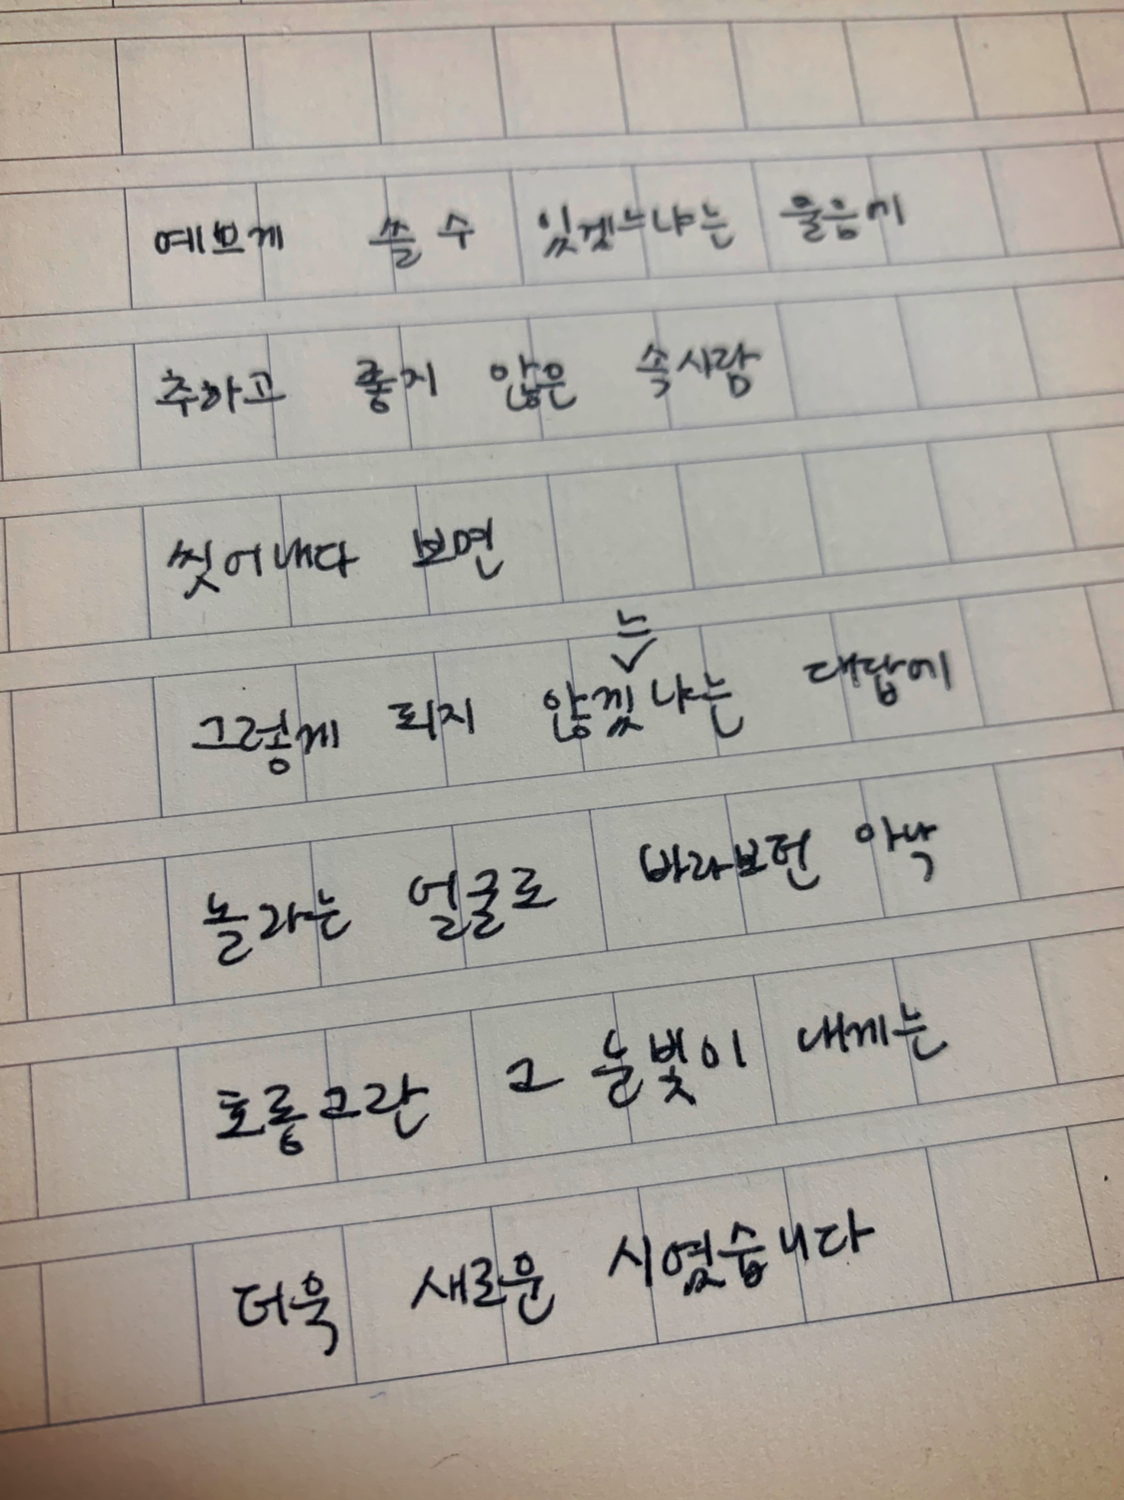 예쁘게 쓸 수 있겠느냐는 물음에
추하고 좋지 않은 속사람
씻어내다 보면
그렇게 되지 않겠느냐는 대답에
놀라는 얼굴로 바라보던 아낙
호롱그란 그 눈빛이 내게는
더욱 새로운 시였습니다